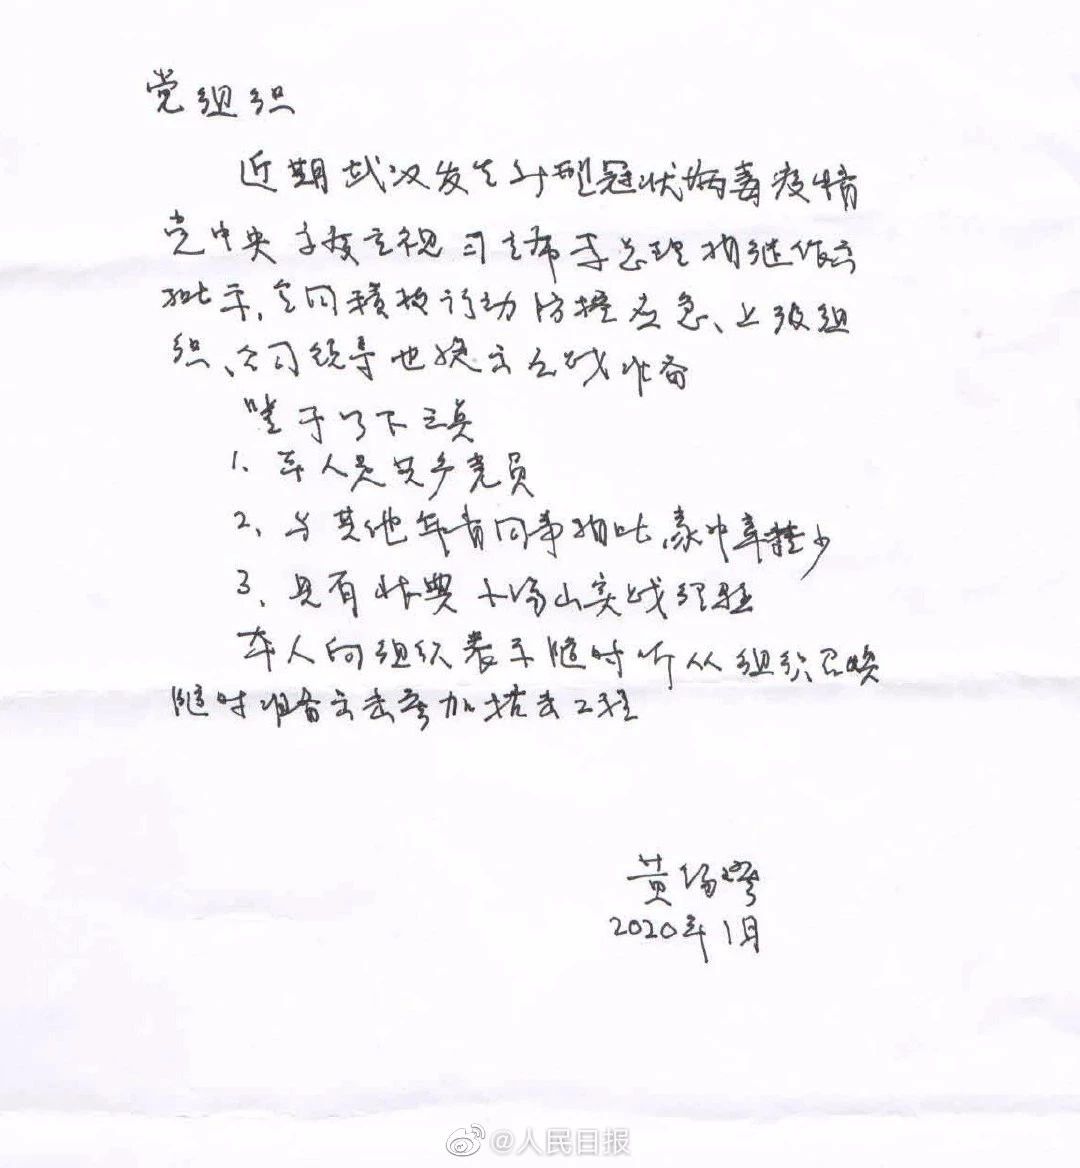 党组织
近期武汉发生新型冠状病毒疫情
党中央高度重视习主席李总理相继作出
批示,全国积极行动防控应急、上级组
织、公司领导也发出了战准备
鉴于以下三点
1、本人是共产党员
2、与其他年青同事相比,家中牵挂少
3、具有非典小汤山实战经验
本人向组织表示随时听从组织召唤
随时准备出击参加抗击工程
黄锡璆
2020年1月
@人民日报